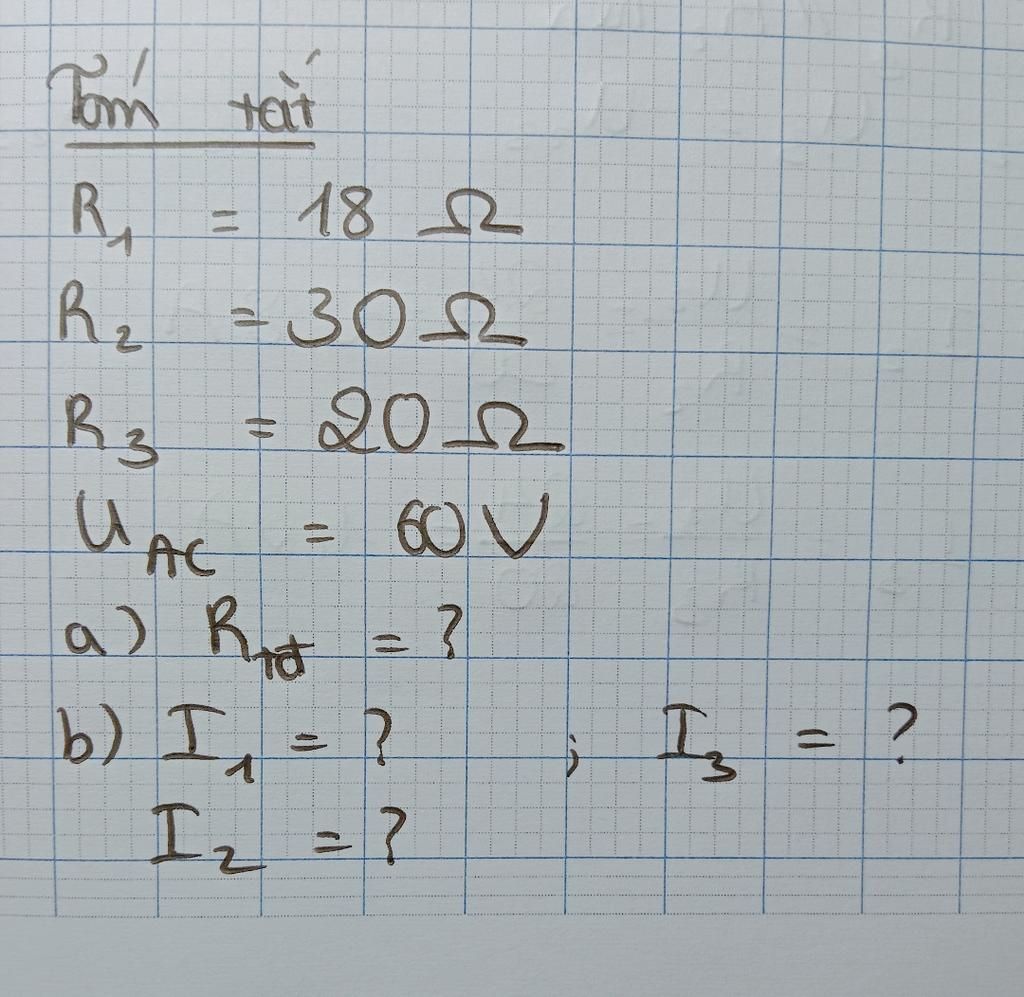 Tóm tắt
R₁ = 18 Ω
R₂ = 30 Ω
R₃ = 20 Ω
U_AC = 60 V
a) R_tđ = ?
b) I₁ = ? ; I₃ = ?
I₂ = ?